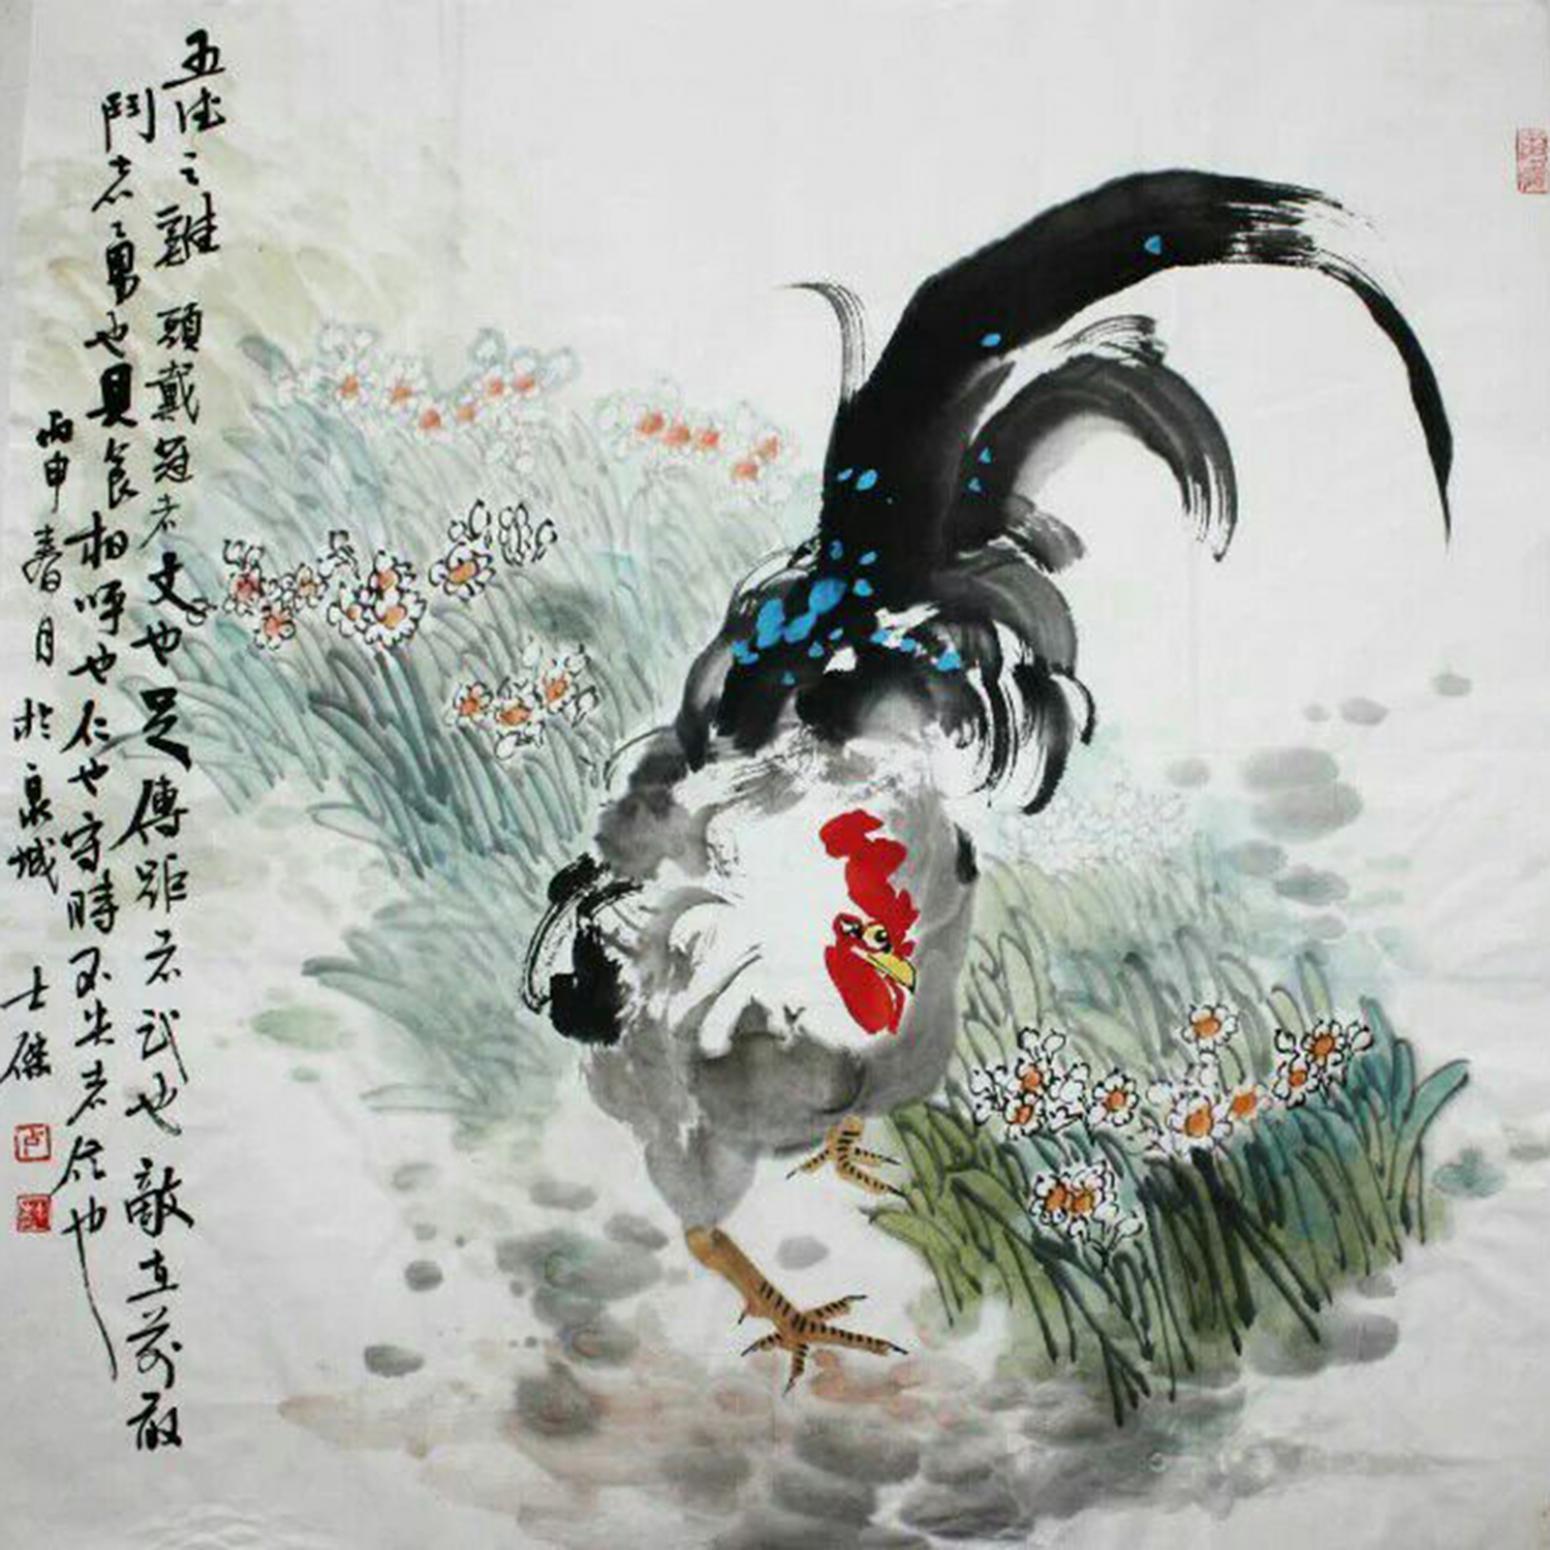 五德之雞 頭戴冠者文也足傅距者武也敵在前敢
鬥者勇也見食相呼也仁也守時不失者信也
丙申春月於泉城 士杰